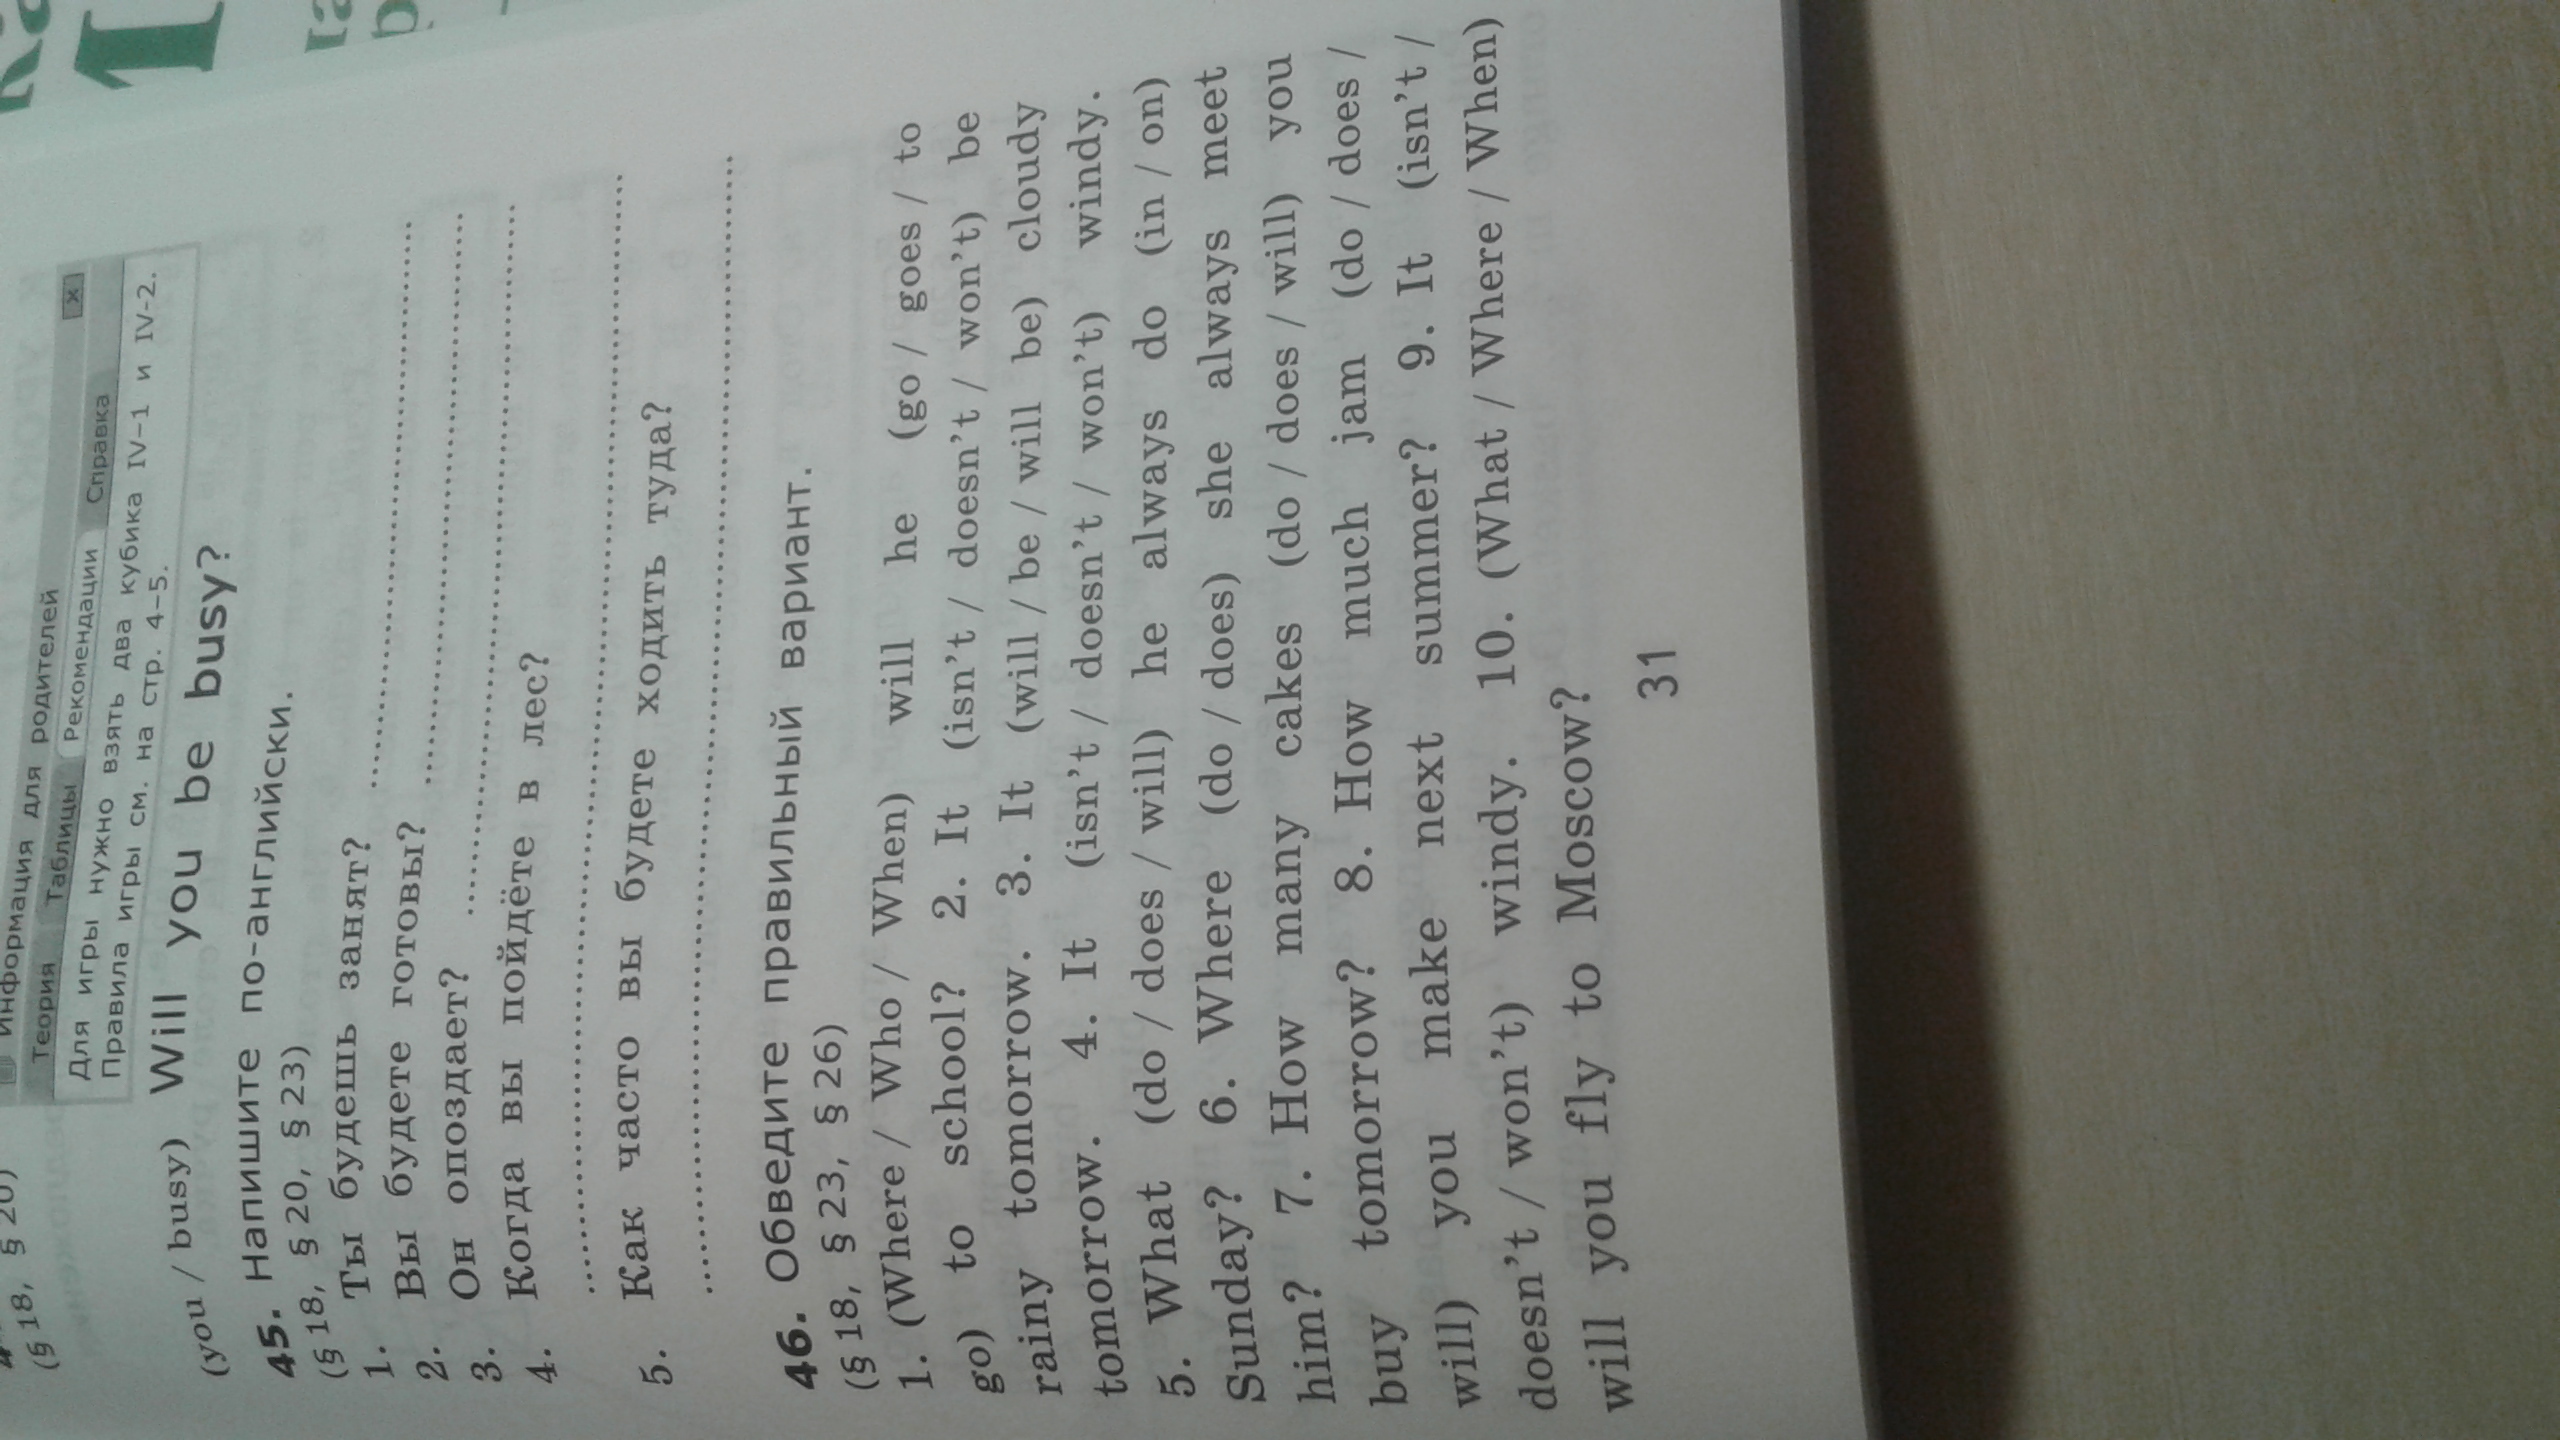 (§ 18, § 20)
Информация для родителей
Теория Таблицы Рекомендации Справка x
Для игры нужно взять два кубика IV–1 и IV–2.
Правила игры см. на стр. 4–5.
(you / busy) Will you be busy?
45. Напишите по-английски.
(§ 18, § 20, § 23)
1. Ты будешь занят? ........................................
2. Вы будете готовы? ........................................
3. Он опоздает? ........................................
4. Когда вы пойдёте в лес?
........................................
5. Как часто вы будете ходить туда?
........................................
46. Обведите правильный вариант.
(§ 18, § 23, § 26)
1. (Where / Who / When) will he (go / goes / to
go) to school? 2. It (isn't / doesn't / won't) be
rainy tomorrow. 3. It (will / be / will be) cloudy
tomorrow. 4. It (isn't / doesn't / won't) windy.
5. What (do / does / will) he always do (in / on)
Sunday? 6. Where (do / does) she always meet
him? 7. How many cakes (do / does / will) you
buy tomorrow? 8. How much jam (do / does /
will) you make next summer? 9. It (isn't /
doesn't / won't) windy. 10. (What / Where / When)
will you fly to Moscow?
31